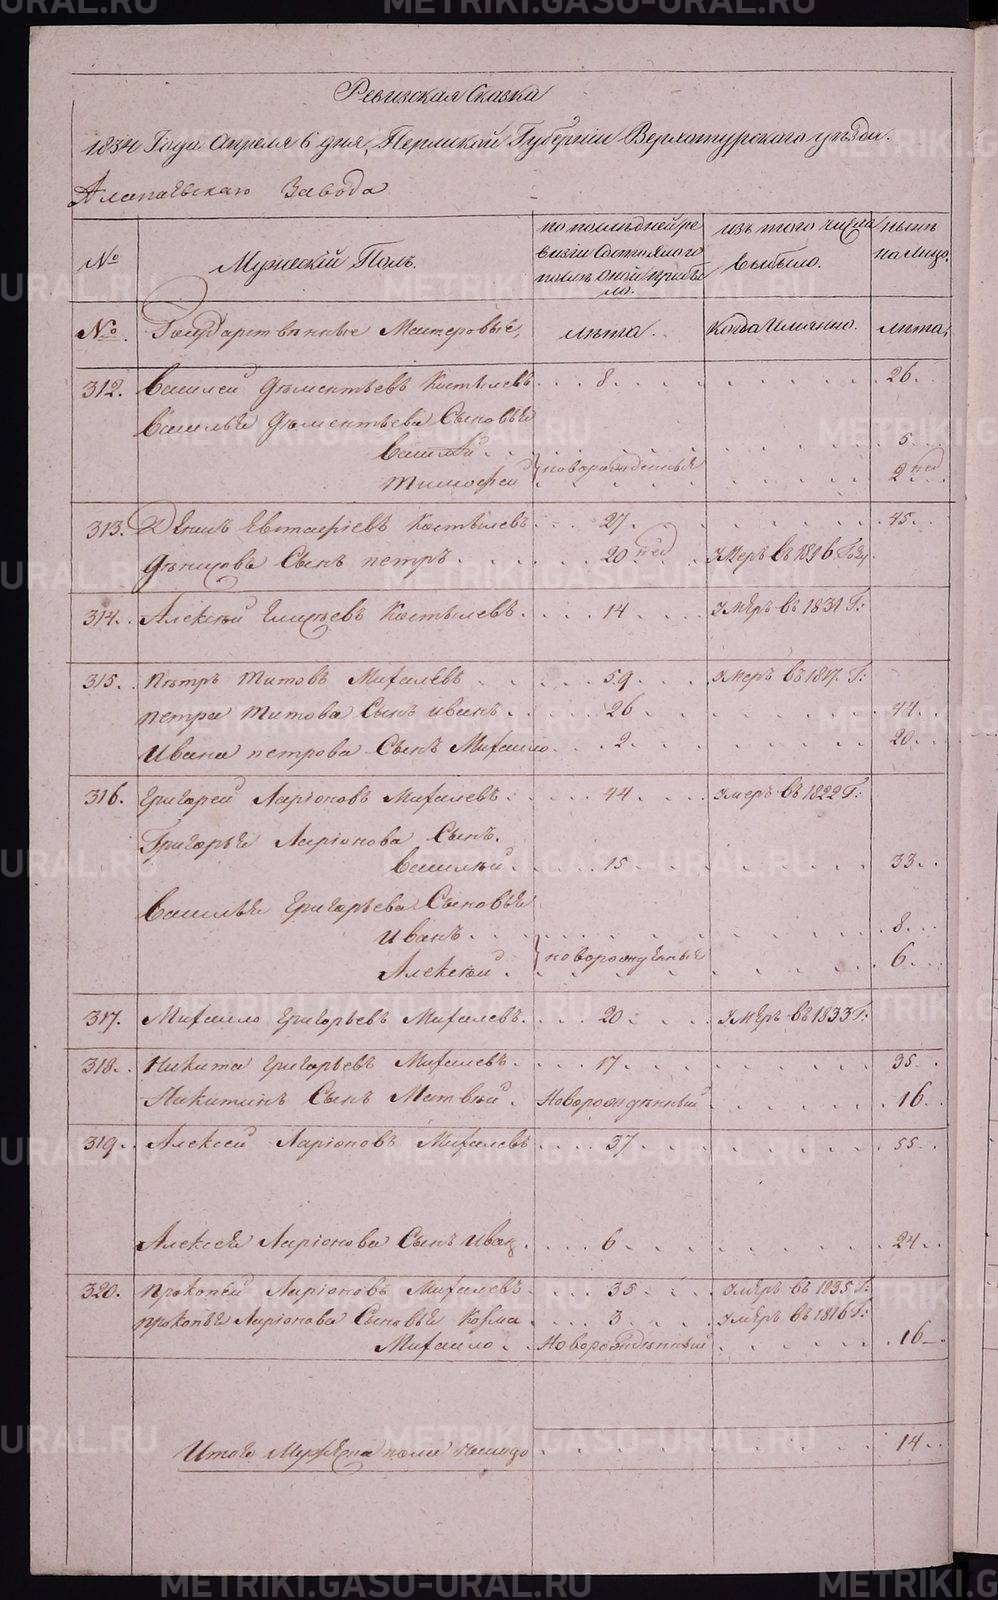 Ревизская Сказка
1834 Года Апреля 6 дня, Пермской Губернии Верхотурскаго уѣзда.
Алапаевскаго Завода
№ Мужескій Полъ. по послѣдней ревизіи Состояло и послѣ оной прибыло. изъ того числа выбыло. нынѣ на лицо.
№. Государственные Мастеровые, лѣта. Когда Имянно. лѣта,
312. Василей Дѣментьевъ Костылевъ 8 26
Василья Дѣментьева Сыновья
Василей новорожденныя 5
Тимофей 2 нед
313. Денисъ Евстафіевъ Костылевъ 27 45
Дѣнисова Сынъ петръ 20 нед Умеръ въ 1816 Году
314. Алексѣй Костылевъ 14 Умѣръ въ 1831 Г:
315. Пѣтръ Титовъ Михалевъ 59 Умеръ въ 1817. Г:
петра Титова Сынъ иванъ 26 44
Ивана петрова Сынъ Михаило 2 20
316. Григорей Ларіоновъ Михалевъ 44 Умеръ въ 1822 Г:
Григорья Ларіонова Сынъ.
Василѣй 15 33
Василья Григорьева Сыновья
Иванъ новорожденныя 8
Алексѣй 6
317. Михаило Григорьевъ Михалевъ. 20 Умѣръ въ 1833 Г:
318. Никита Григорьевъ Михалевъ. 17 35
Никитинъ Сынъ Матвѣй. Новорождѣнный 16
319. Алексей Ларіоновъ Михалевъ 37 55
Алексея Ларіонова Сынъ Иванъ 6 24
320. Прокопей Ларіоновъ Михалевъ 35 Умѣръ въ 1835 Г:
прокопья Ларіонова Сыновья Козма 3 Умѣръ въ 1816 Г:
Михаило Новорождѣнный 16
Итого Мужеска пола налицо 14
METRIKI.GASO-URAL.RU